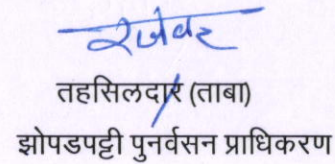 तहसिलदार (ताबा)
झोपडपट्टी पुनर्वसन प्राधिकरण